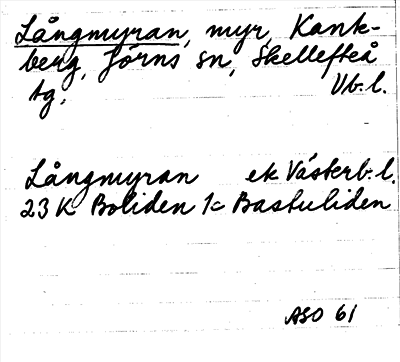 Långmyran, myr, Kank-
berg, Jörns sn, Skellefteå
tg. Vb.l.
Långmyran ek Västerb.l.
23 K Boliden 1c Bastuliden
ASO 61